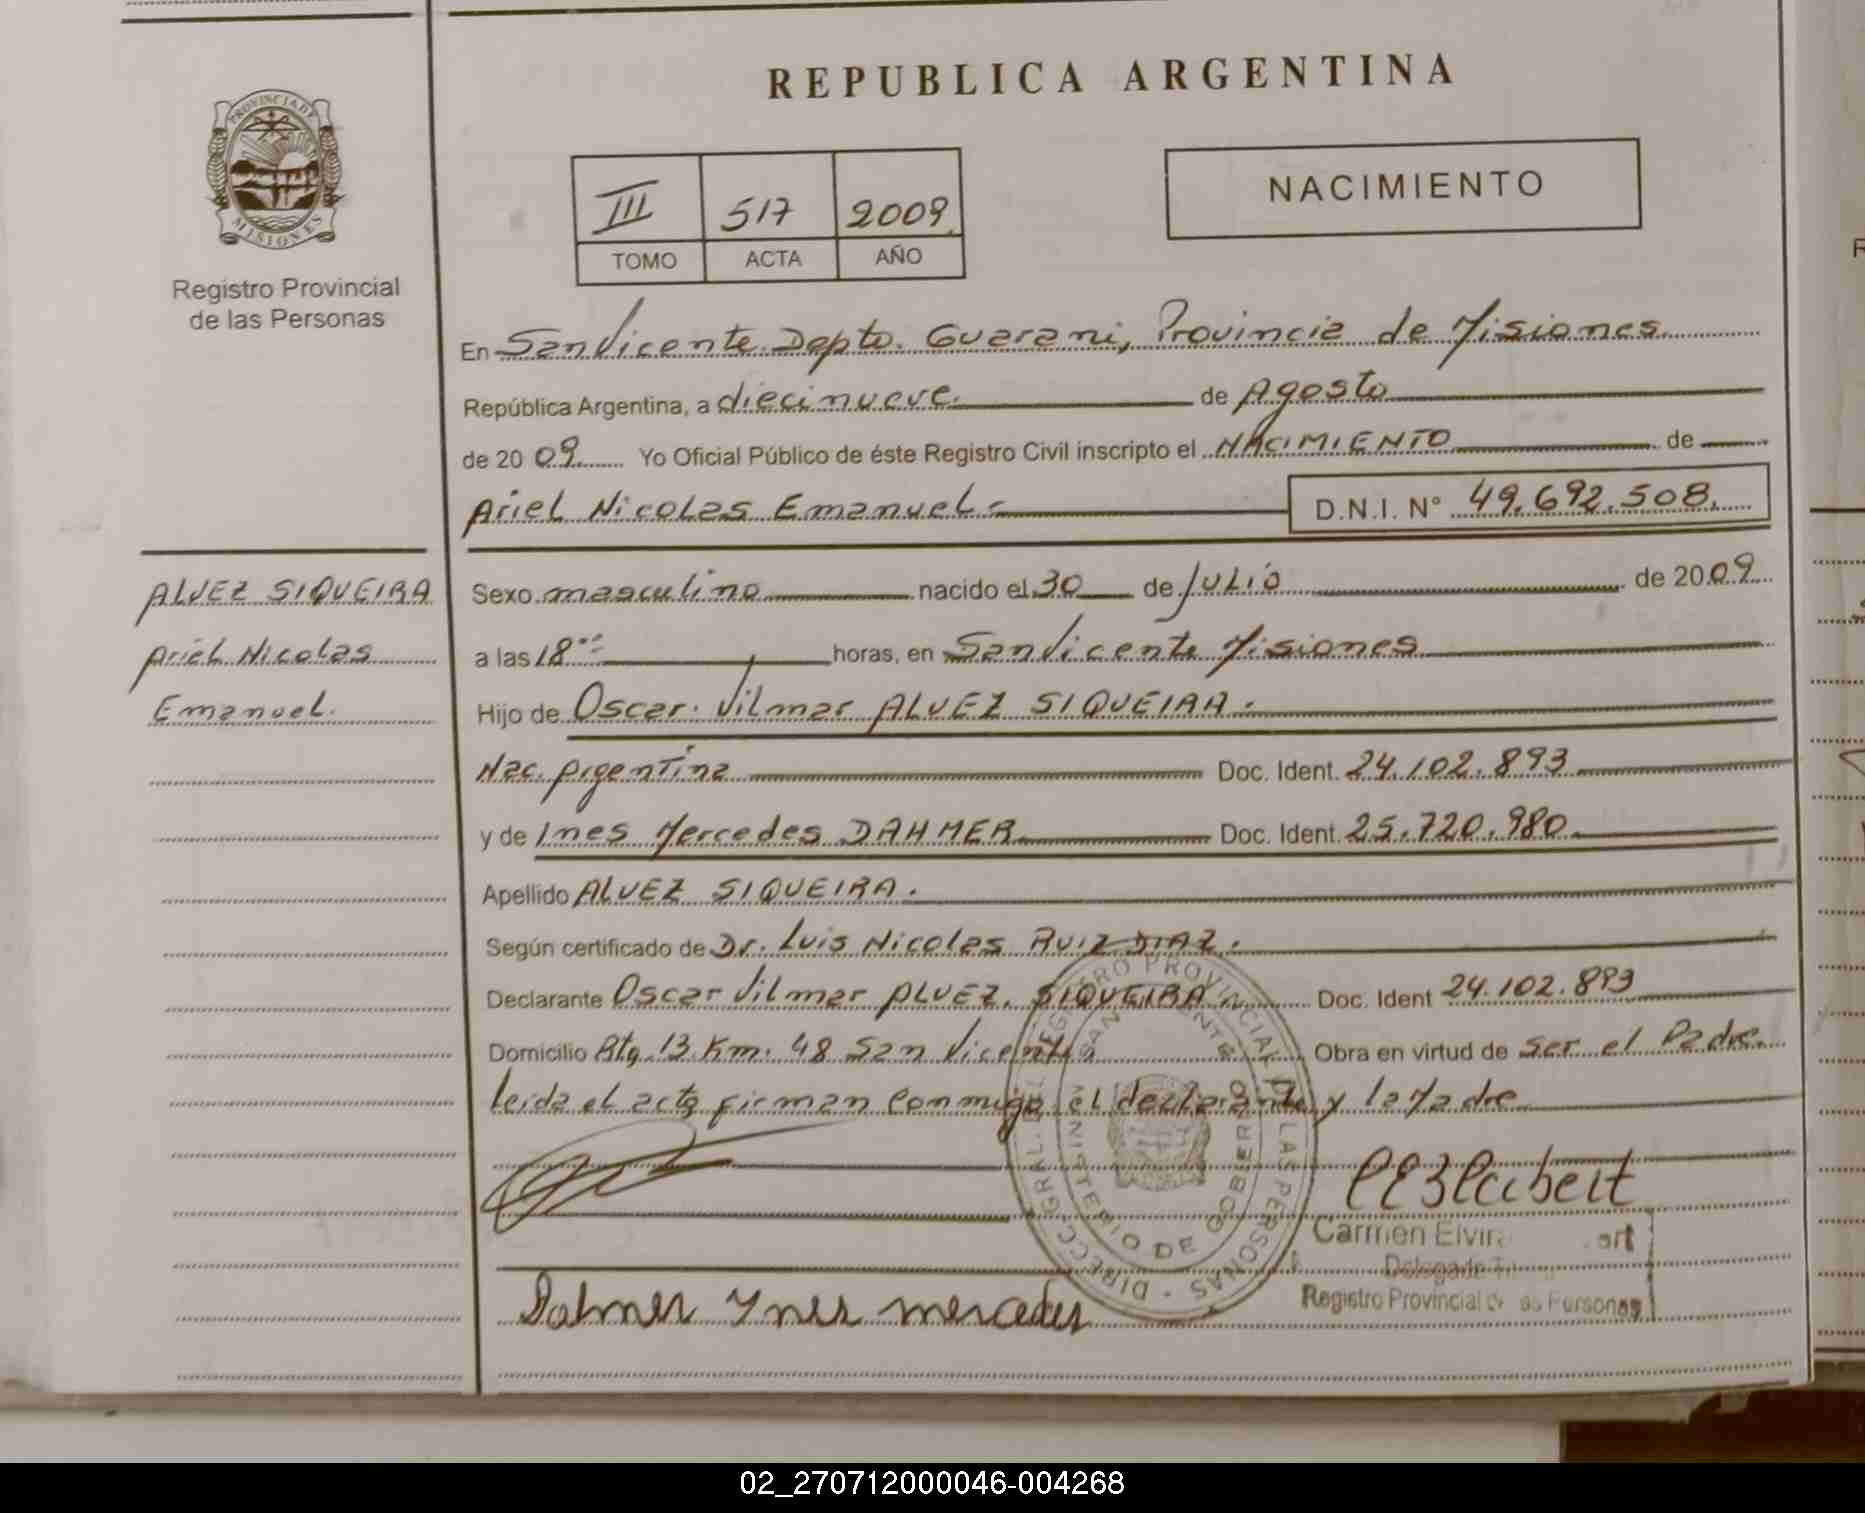 REPUBLICA ARGENTINA
PROVINCIA DE
MISIONES
Registro Provincial
de las Personas
III 517 2009
TOMO ACTA AÑO
NACIMIENTO
En San Vicente Depto. Guarani, Provincia de Misiones
República Argentina, a diecinueve de Agosto
de 2009 Yo Oficial Público de éste Registro Civil inscripto el NACIMIENTO de
Ariel Nicolas Emanuel D.N.I. N° 49.692.508.
ALVEZ SIQUEIRA
Ariel Nicolas
Emanuel.
Sexo masculino nacido el 30 de Julio de 2009
a las 18 horas, en San Vicente Misiones
Hijo de Oscar Vilmar ALVEZ SIQUEIRA.
Nac. Argentina Doc. Ident. 24.102.893
y de Ines Mercedes DAHMER Doc. Ident. 25.720.980
Apellido ALVEZ SIQUEIRA.
Según certificado de Dr. Luis Nicolas RUIZ DIAZ.
Declarante Oscar Vilmar ALVEZ SIQUEIRA Doc. Ident 24.102.893
Domicilio Rta 13 Km. 48 San Vicente Obra en virtud de ser el Padre.
leida el acta firman conmigo el declarante y la Madre
DIRECC. GRAL. DEL REGISTRO PROVINCIAL DE LAS PERSONAS
SAN VICENTE
MINISTERIO DE GOBIERNO
Carmen Elvira
Registro Provincial de las Personas
Dahmer Ynes mercedes
02_270712000046-004268